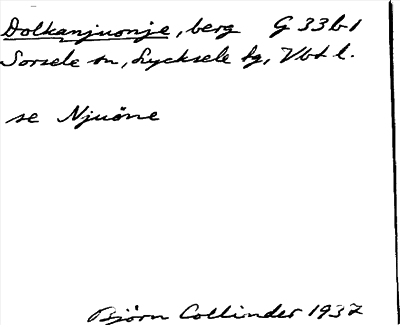 Dolkanjuonje, berg G 33b1
Sorsele sn, Lycksele lg, Vbt l.
se Njuöne
Björn Collinder 1937